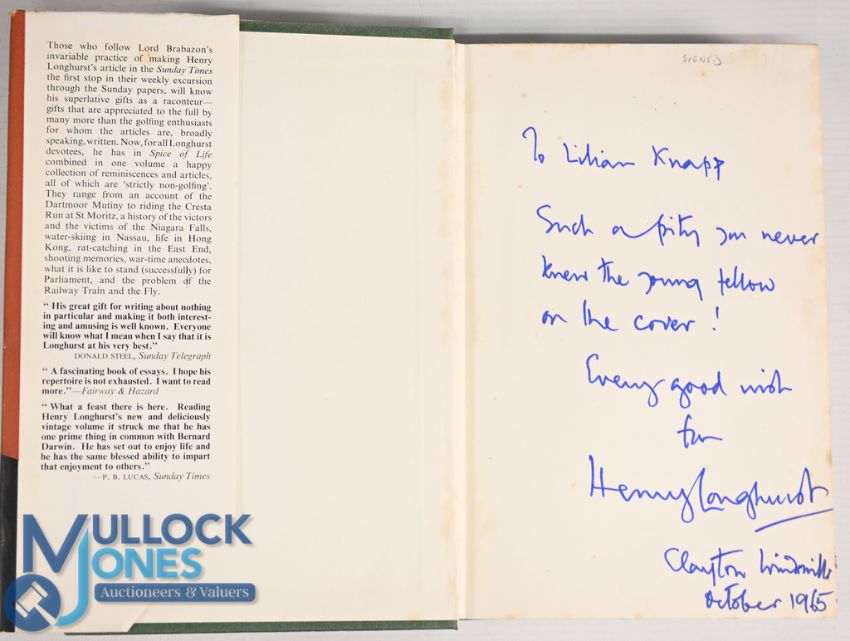 Those who follow Lord Brabazon's
invariable practice of making Henry
Longhurst's article in the Sunday Times
the first stop in their weekly excursion
through the Sunday papers, will know
his superlative gifts as a raconteur—
gifts that are appreciated to the full by
many more than the golfing enthusiasts
for whom the articles are, broadly
speaking, written. Now, for all Longhurst
devotees, he has in Spice of Life
combined in one volume a happy
collection of reminiscences and articles,
all of which are 'strictly non-golfing'.
They range from an account of the
Dartmoor Mutiny to riding the Cresta
Run at St Moritz, a history of the victors
and the victims of the Niagara Falls,
water-skiing in Nassau, life in Hong
Kong, rat-catching in the East End,
shooting memories, war-time anecdotes,
what it is like to stand (successfully) for
Parliament, and the problem of the
Railway Train and the Fly.
" His great gift for writing about nothing
in particular and making it both interest-
ing and amusing is well known. Everyone
will know what I mean when I say that it is
Longhurst at his very best."
DONALD STEEL, Sunday Telegraph
" A fascinating book of essays. I hope his
repertoire is not exhausted. I want to read
more."—Fairway & Hazard
" What a feast there is here. Reading
Henry Longhurst's new and deliciously
vintage volume it struck me that he has
one prime thing in common with Bernard
Darwin. He has set out to enjoy life and
he has the same blessed ability to impart
that enjoyment to others."
—P. B. LUCAS, Sunday Times
SIGNED
To Lilian Knapp
Such a pity you never
knew the young fellow
on the cover!
Every good wish
from
Henry Longhurst
Clayton Windmills
October 1965
MULLOCK
JONES
Auctioneers & Valuers